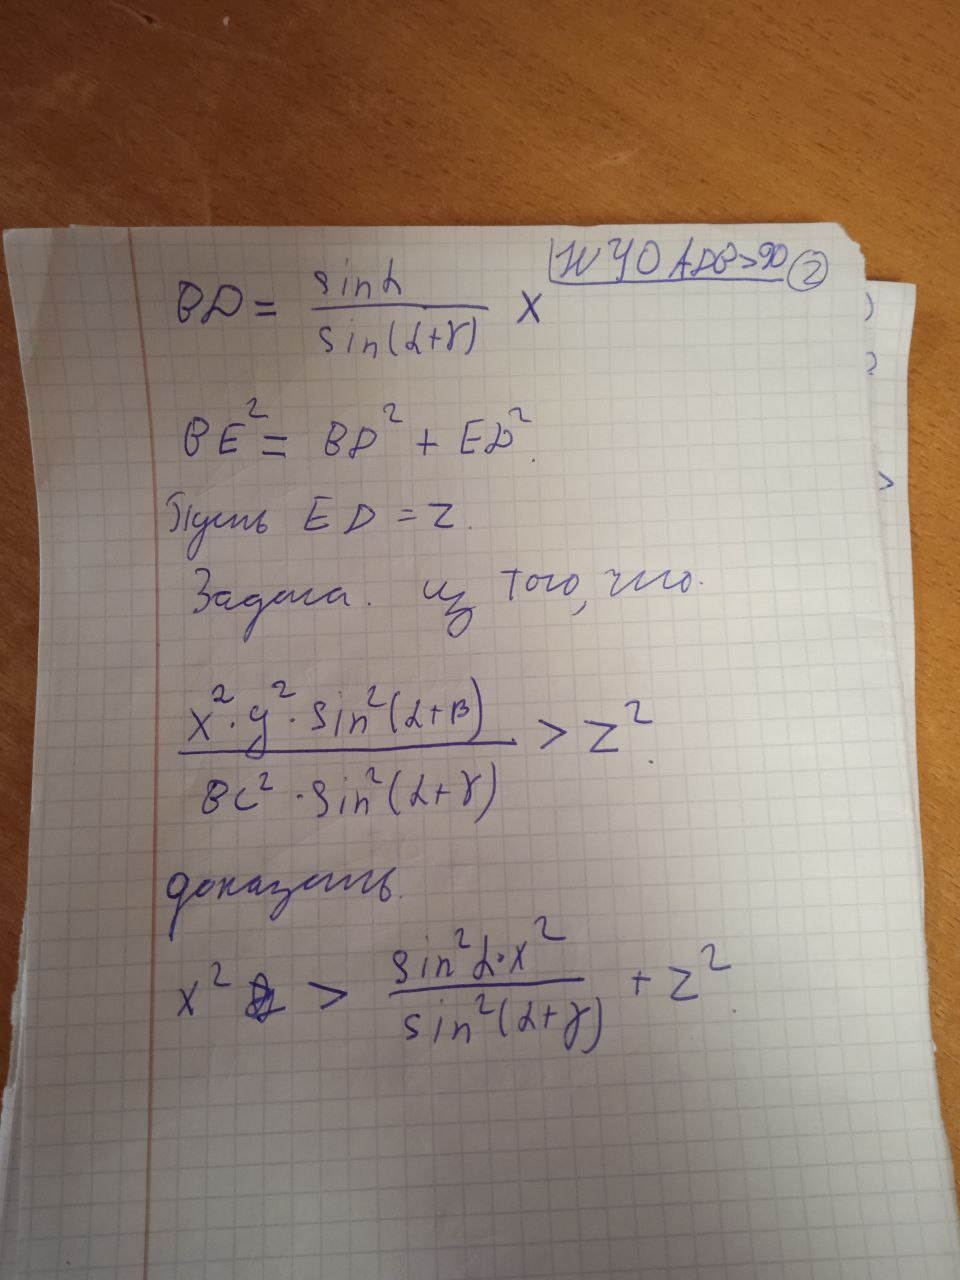 НУО ADB>90 2
BD = sin α / sin(α+γ) x
BE² = BD² + ED².
Пусть ED = z.
Задача. из того, что.
x² · y² · sin²(α+β) / BC² · sin²(α+γ) > z².
доказать.
x² > sin²α · x² / sin²(α+γ) + z².